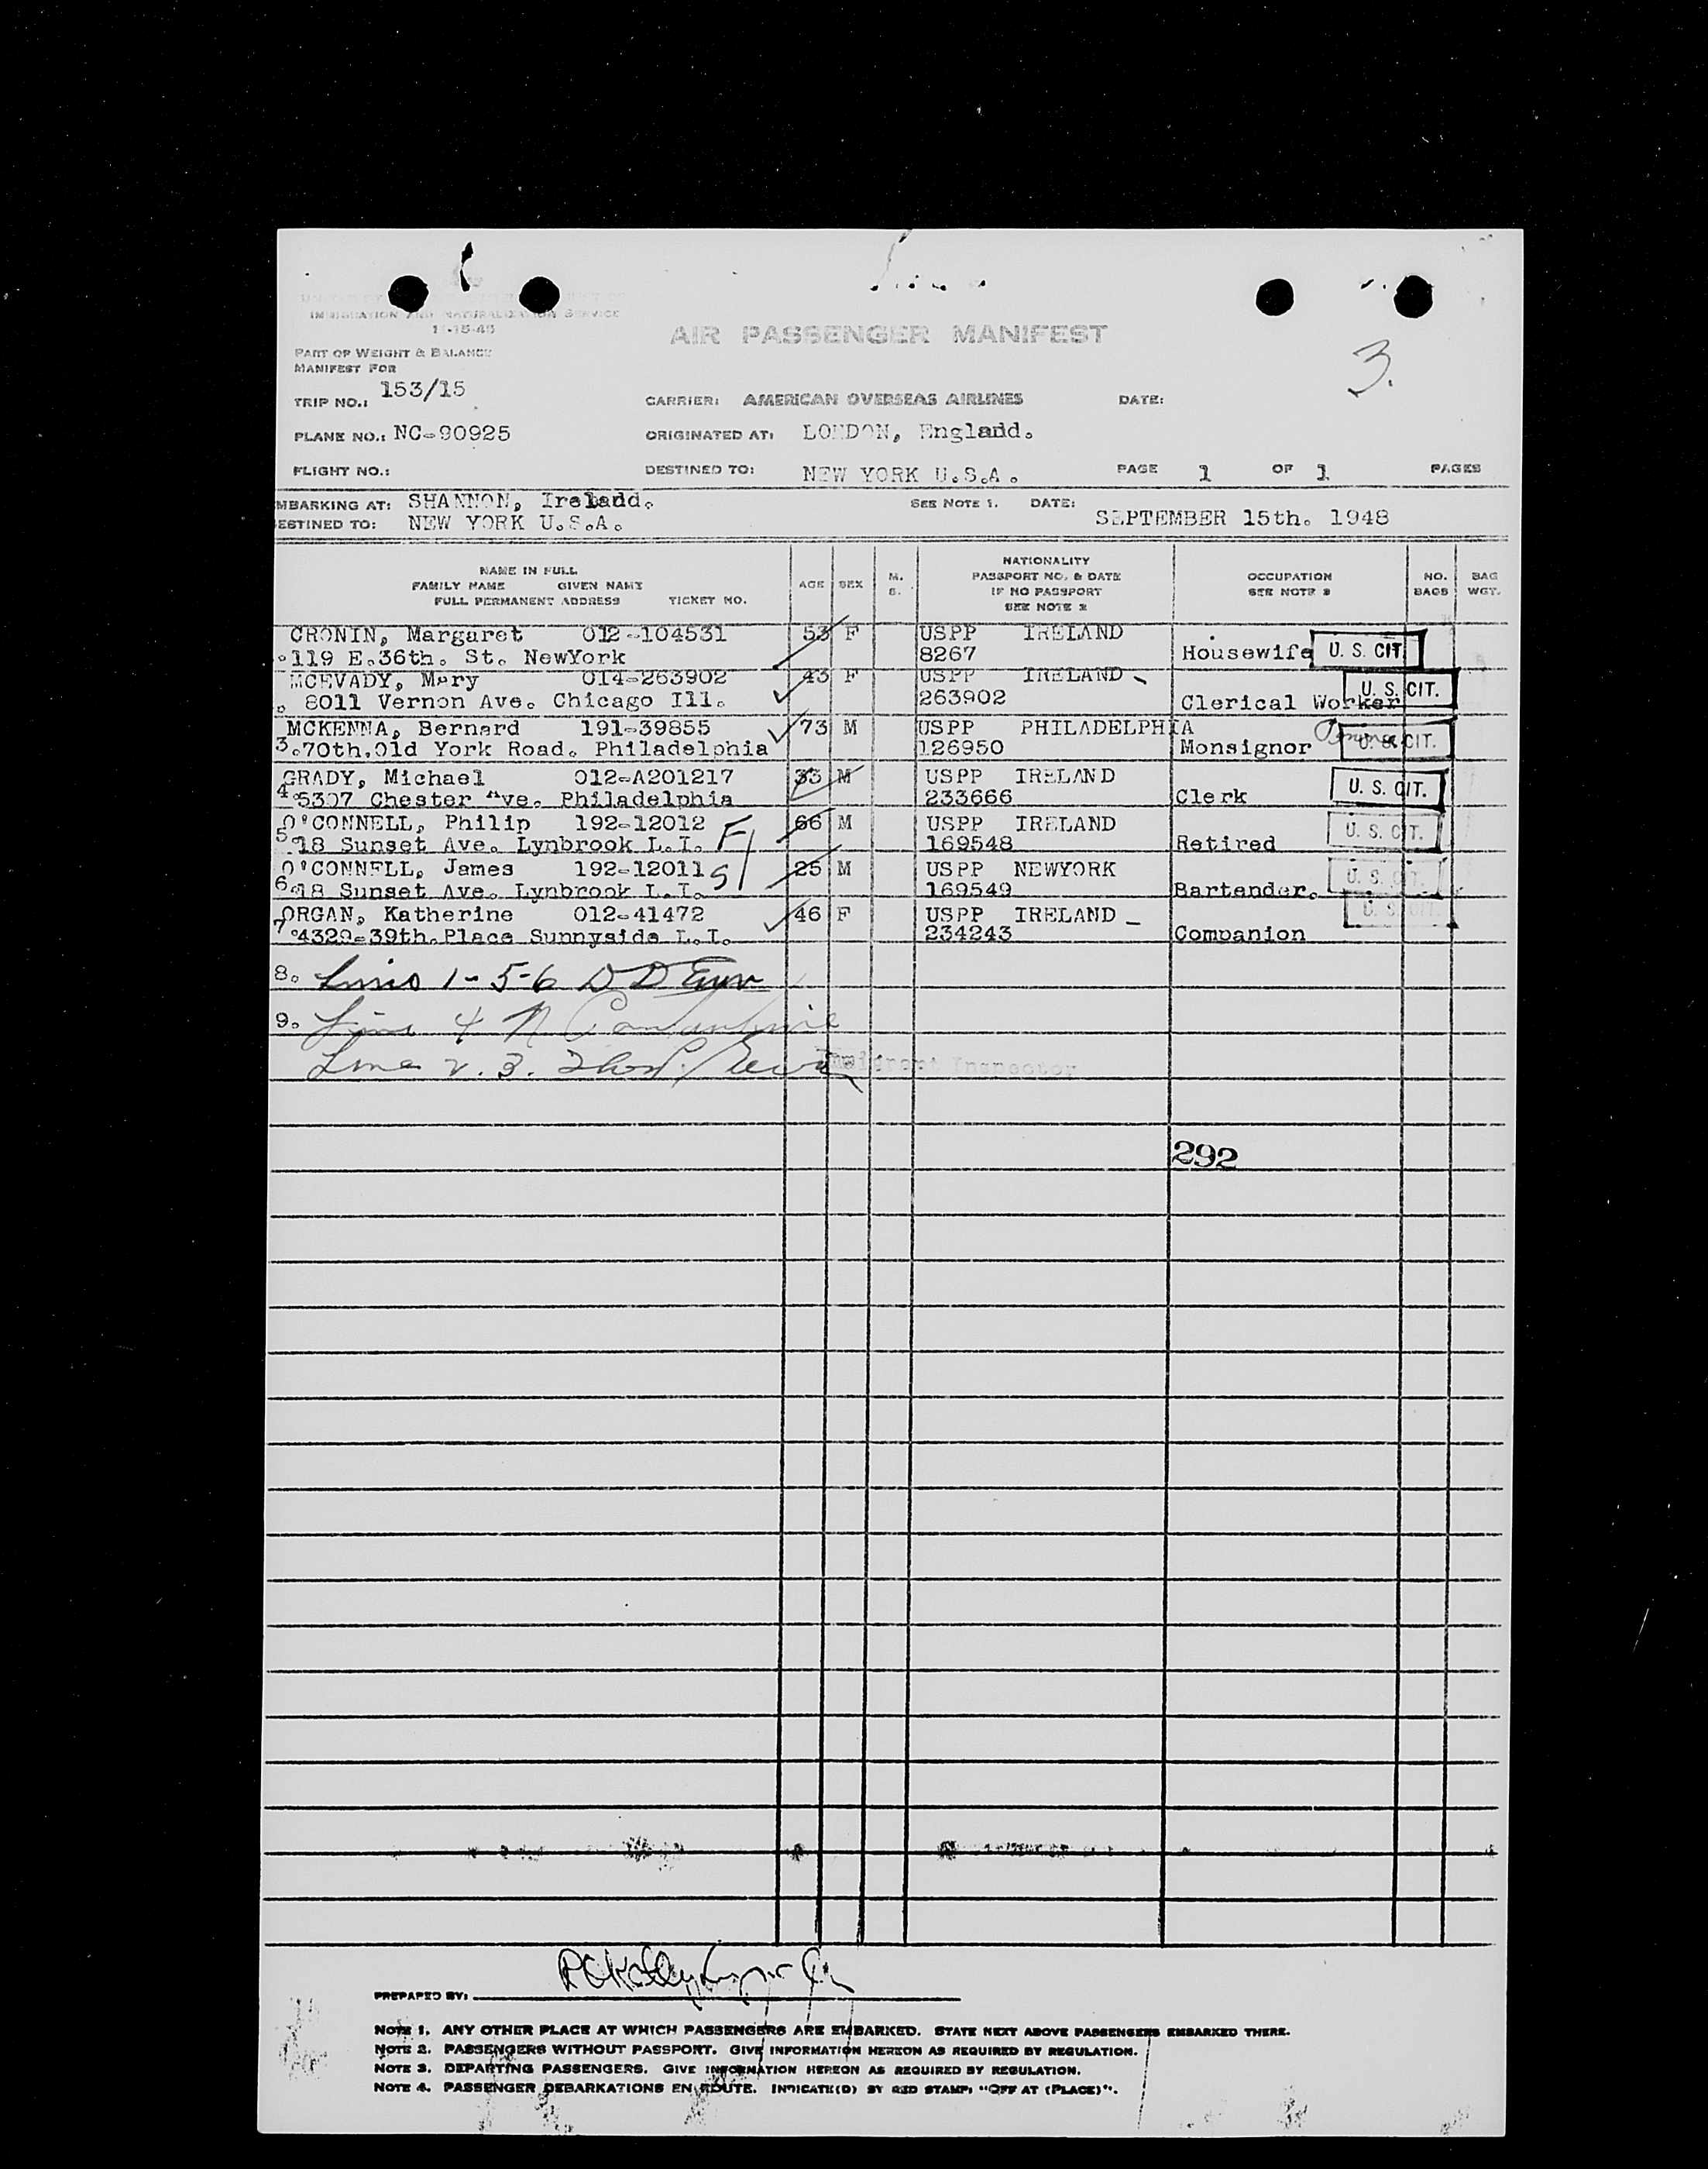 IMMIGRATION AND NATURALIZATION SERVICE
11-15-45
AIR PASSENGER MANIFEST
3.
PART OF WEIGHT & BALANCE
MANIFEST FOR
TRIP NO.: 153/15 CARRIER: AMERICAN OVERSEAS AIRLINES DATE:
PLANE NO.: NC-90925 ORIGINATED AT: LONDON, England.
FLIGHT NO.: DESTINED TO: NEW YORK U.S.A. PAGE 1 OF 1 PAGES
MBARKING AT: SHANNON, Ireladd. SEE NOTE 1. DATE:
ESTINED TO: NEW YORK U.S.A. SEPTEMBER 15th. 1948
NAME IN FULL
FAMILY NAME GIVEN NAME
FULL PERMANENT ADDRESS TICKET NO.
AGE SEX M. S.
NATIONALITY
PASSPORT NO. & DATE
IF NO PASSPORT
SEE NOTE 2
OCCUPATION
SEE NOTE 3
NO. BAGS
BAG WGT.
CRONIN, Margaret 012-104531 53 F USPP IRELAND
119 E.36th. St. NewYork 8267 Housewife U. S. CIT.
MCEVADY, Mary 014-263902 43 F USPP IRELAND -
8011 Vernon Ave. Chicago Ill. 263902 Clerical Worker U. S. CIT.
MCKENNA, Bernard 191-39855 73 M USPP PHILADELPHIA
3.70th.Old York Road. Philadelphia 126950 Monsignor U. S. CIT.
GRADY, Michael 012-A201217 33 M USPP IRELAND
4.5307 Chester Ave. Philadelphia 233666 Clerk U. S. CIT.
O'CONNELL, Philip 192-12012 66 M USPP IRELAND
5.18 Sunset Ave. Lynbrook L.I. 169548 Retired U. S. CIT.
O'CONNELL, James 192-12011 25 M USPP NEWYORK
6.18 Sunset Ave. Lynbrook L.I. 169549 Bartender. U. S. CIT.
ORGAN, Katherine 012-41472 46 F USPP IRELAND -
7.4329-39th.Place Sunnyside L.I. 234243 Companion U. S. CIT.
8. Lines 1-5-6
9. Line 4
Line 2. 3. Immigrant Inspector
292
PREPARED BY:
NOTE 1. ANY OTHER PLACE AT WHICH PASSENGERS ARE EMBARKED. STATE NEXT ABOVE PASSENGERS EMBARKED THERE.
NOTE 2. PASSENGERS WITHOUT PASSPORT. GIVE INFORMATION HEREON AS REQUIRED BY REGULATION.
NOTE 3. DEPARTING PASSENGERS. GIVE INFORMATION HEREON AS REQUIRED BY REGULATION.
NOTE 4. PASSENGER DEBARKATIONS EN ROUTE. INDICATE(D) BY RED STAMP: "OFF AT (PLACE)".